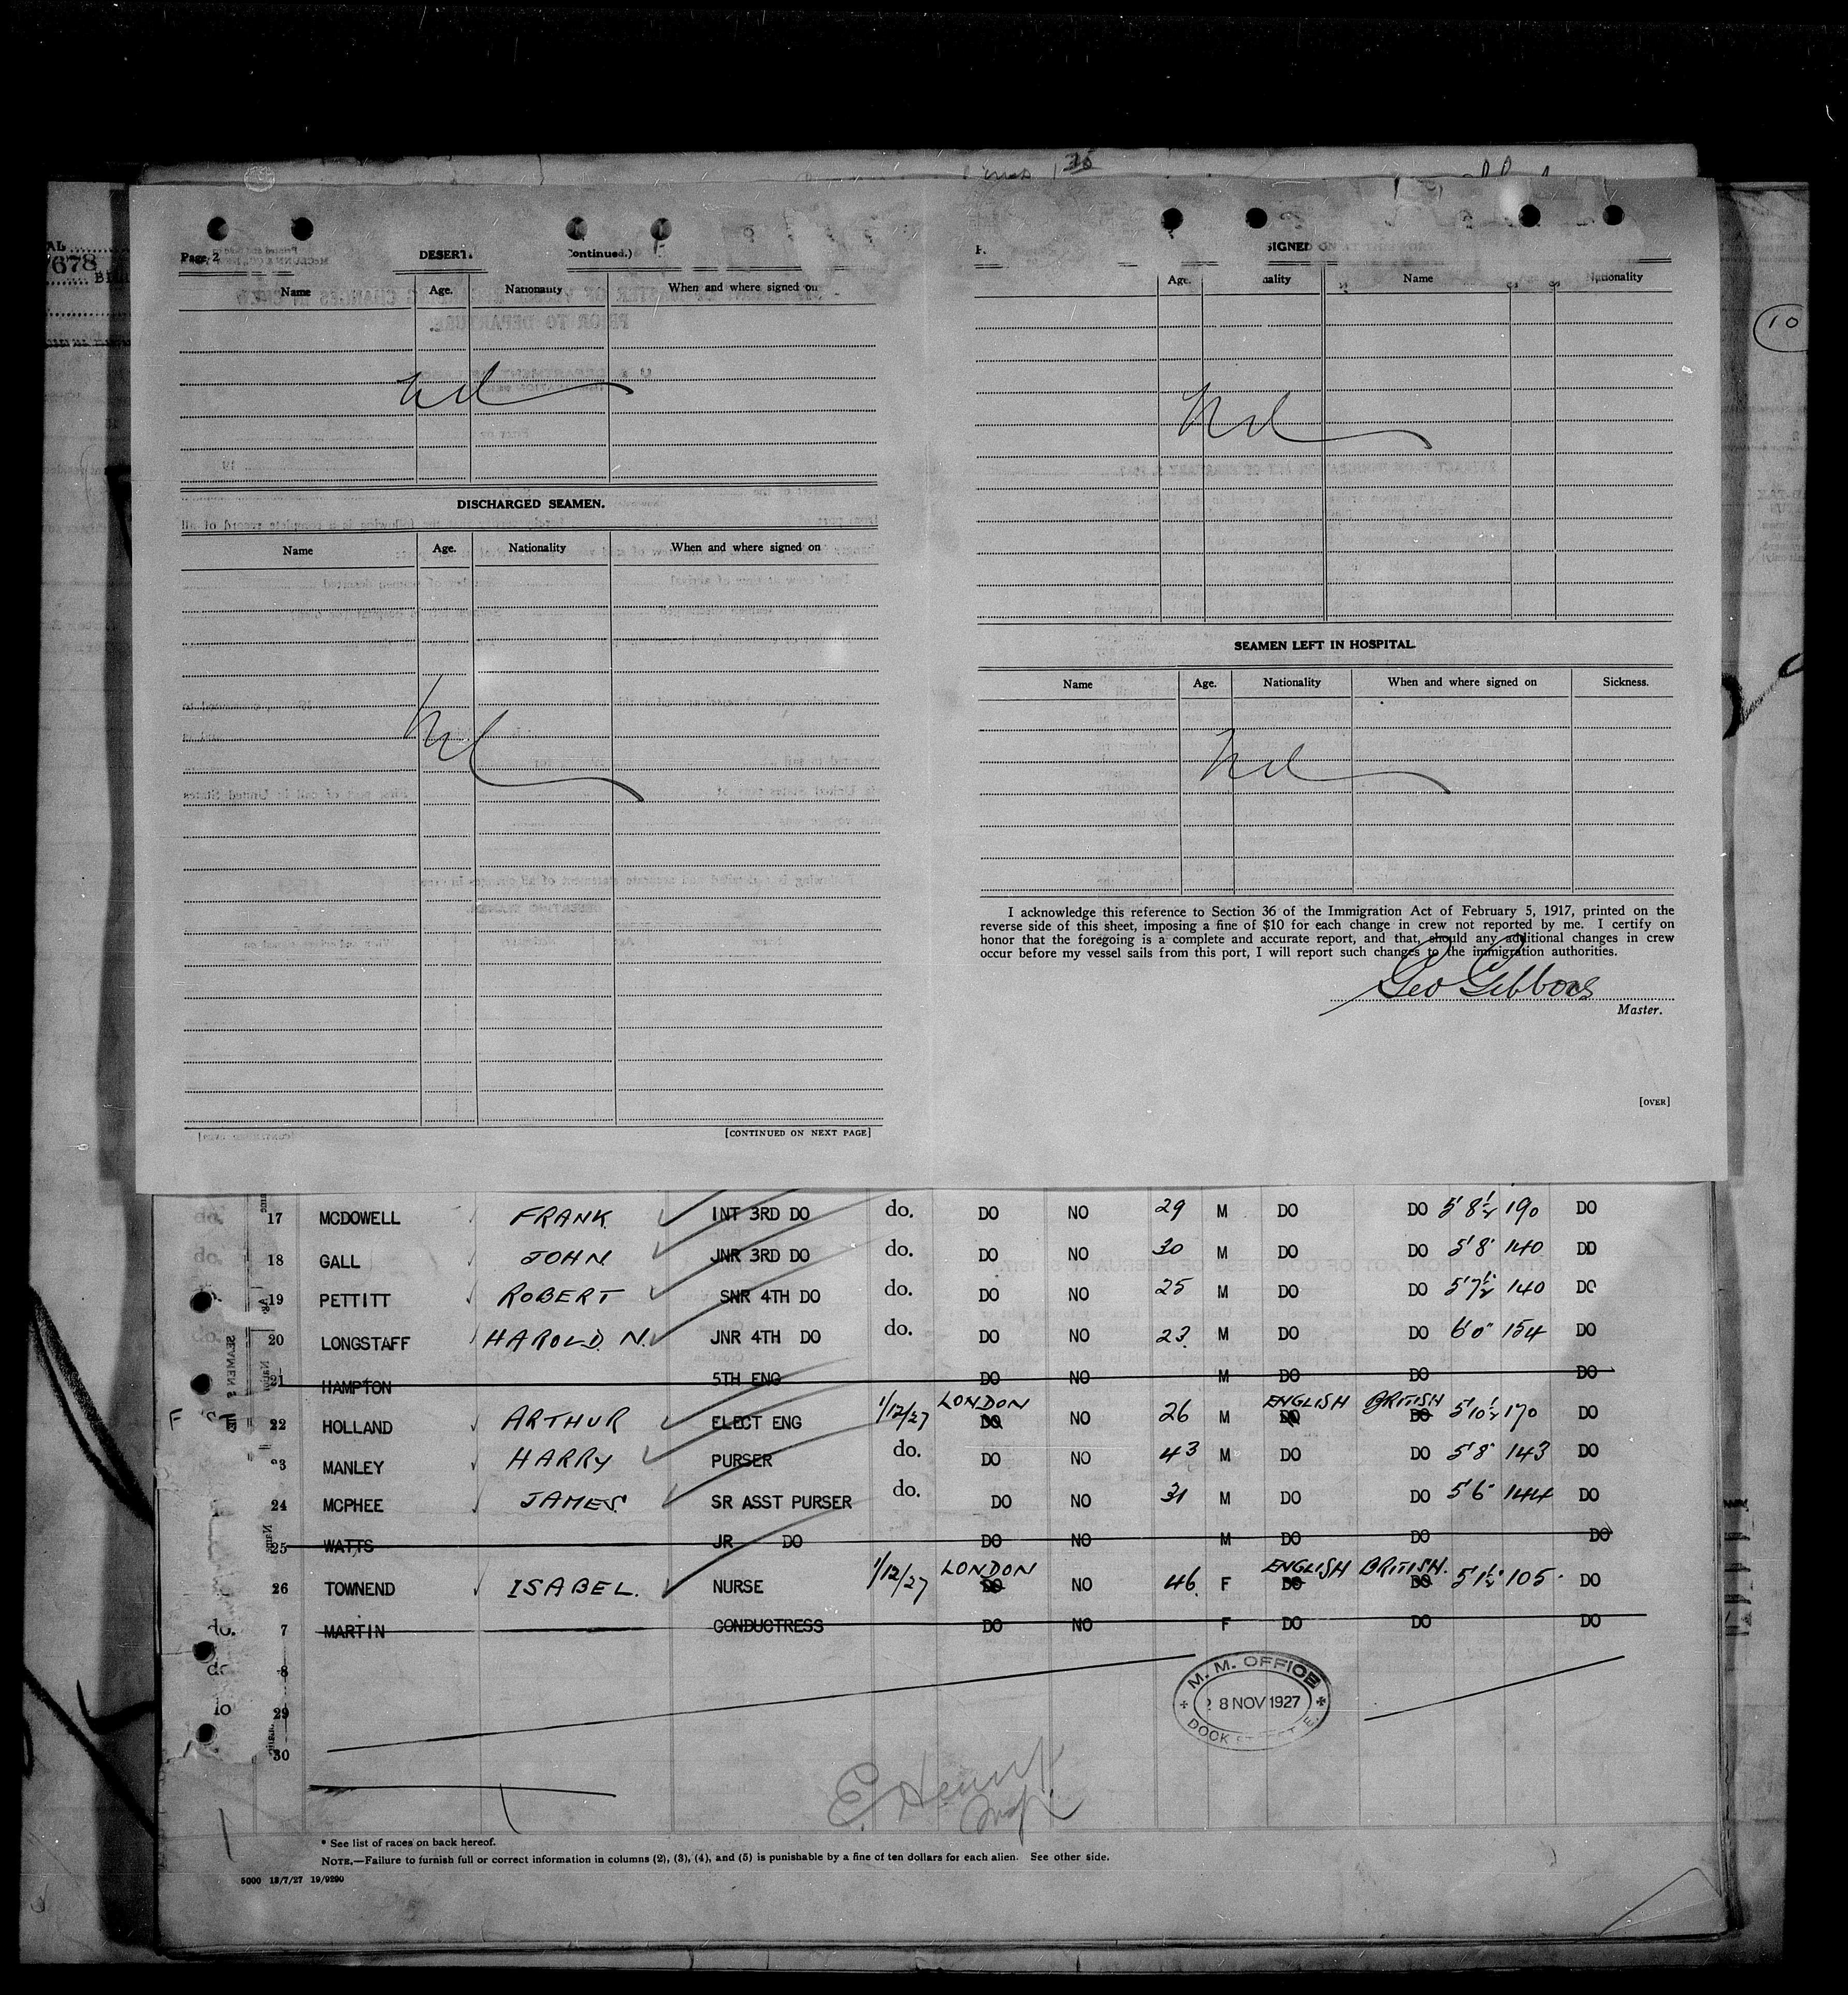 678
10
Page 2 DESERT (Continued.)
Name Age. Nationality When and where signed on
Nil
DISCHARGED SEAMEN.
Name Age. Nationality When and where signed on
Nil
[CONTINUED ON NEXT PAGE]
SIGNED ON
Age. ality Name Nationality
Nil
SEAMEN LEFT IN HOSPITAL
Name Age. Nationality When and where signed on Sickness.
Nil
I acknowledge this reference to Section 36 of the Immigration Act of February 5, 1917, printed on the
reverse side of this sheet, imposing a fine of $10 for each change in crew not reported by me. I certify on
honor that the foregoing is a complete and accurate report, and that, should any additional changes in crew
occur before my vessel sails from this port, I will report such changes to the immigration authorities.
Geo Gibbons
Master.
[OVER]
17 MCDOWELL FRANK INT 3RD DO do. DO NO 29 M DO DO 5'8½ 190 DO
18 GALL JOHN JNR 3RD DO do. DO NO 30 M DO DO 5'8" 140 DO
19 PETTITT ROBERT SNR 4TH DO do. DO NO 25 M DO DO 5'7½" 140 DO
20 LONGSTAFF HAROLD N. JNR 4TH DO do. DO NO 23 M DO DO 6'0" 154 DO
21 HAMPTON 5TH ENG DO NO M DO DO DO
22 HOLLAND ARTHUR ELECT ENG 1/12/27 LONDON DO NO 26 M ENGLISH DO BRITISH DO 5'10½ 170 DO
23 MANLEY HARRY PURSER do. DO NO 43 M DO DO 5'8" 143 DO
24 MCPHEE JAMES SR ASST PURSER do. DO NO 31 M DO DO 5'6" 144 DO
25 WATTS JR DO DO NO M DO DO DO
26 TOWNEND ISABEL. NURSE 1/12/27 LONDON DO NO 46 F ENGLISH DO BRITISH. DO 5'1½" 105 DO
7 MARTIN CONDUCTRESS DO NO F DO DO DO
8
29
30
M. M. OFFICE
28 NOV 1927
DOCK STREET E.
* See list of races on back hereof.
NOTE.—Failure to furnish full or correct information in columns (2), (3), (4), and (5) is punishable by a fine of ten dollars for each alien. See other side.
5000 13/7/27 19/9290